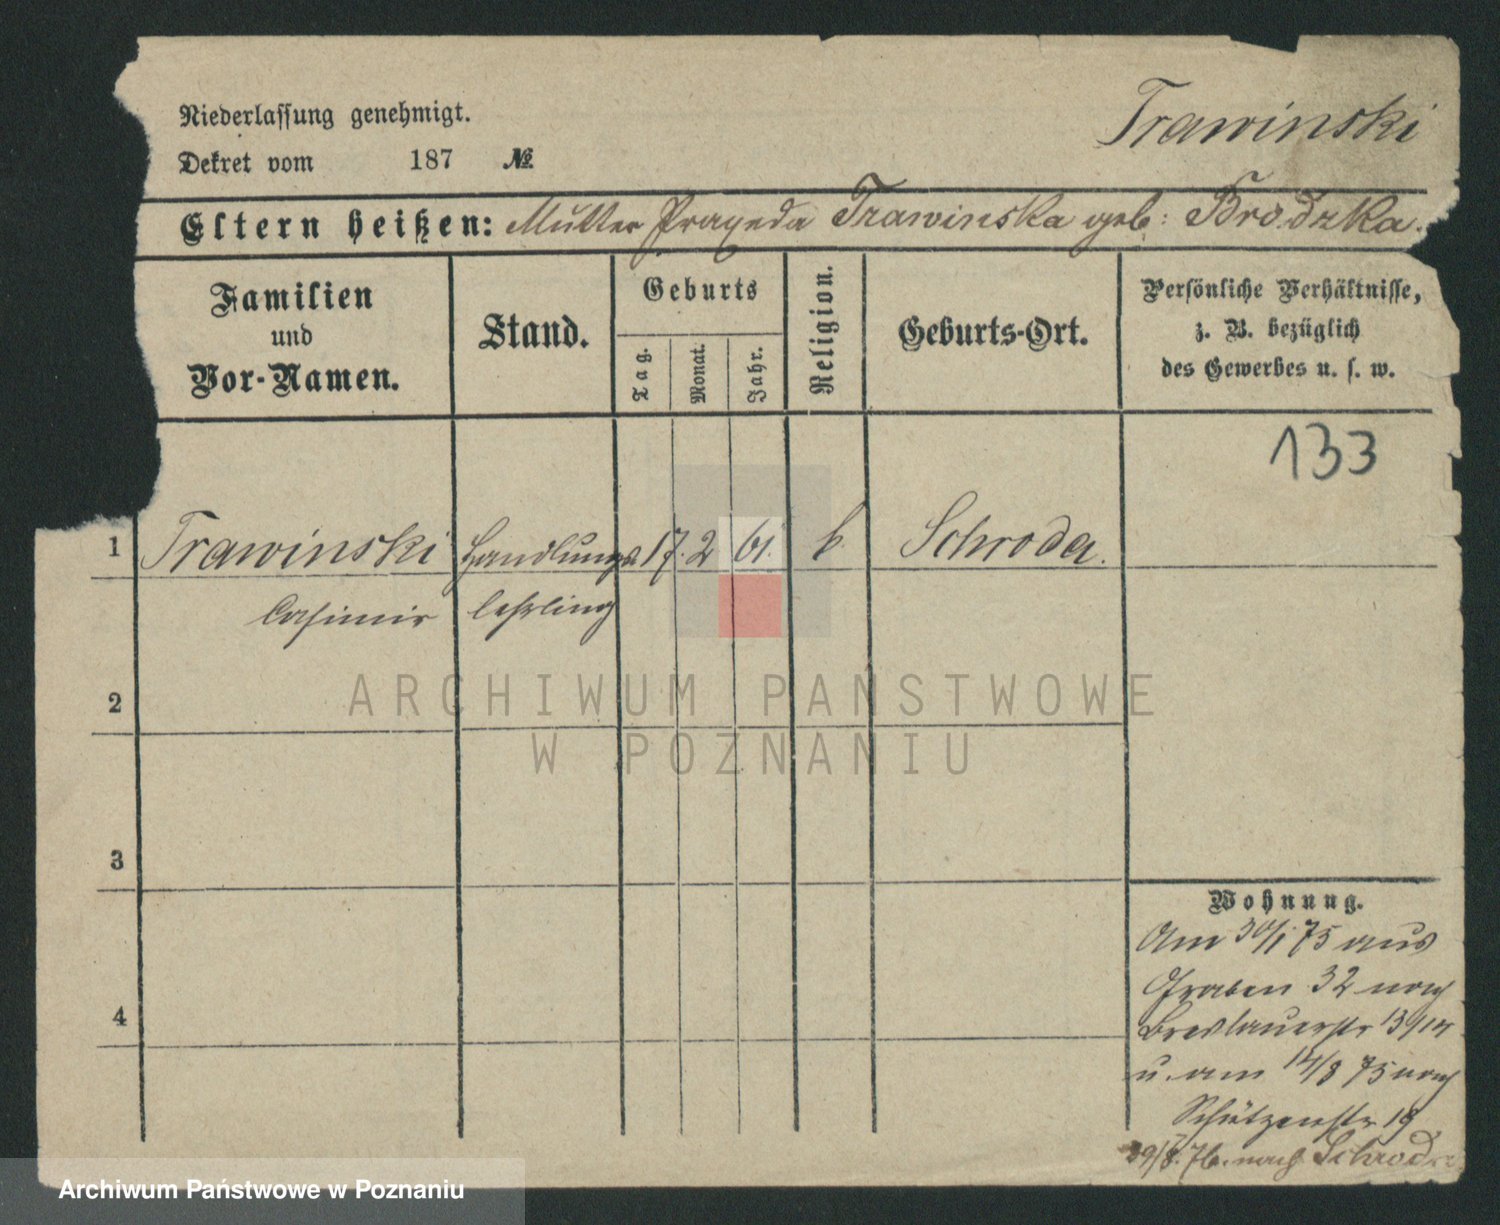 Niederlassung genehmigt.
Trawinski
Dekret vom 187 №
Eltern heißen: Mutter Praxeda Trawinska geb: Brodzka.
Familien und Vor-Namen.
Stand.
Geburts
Tag.
Monat.
Jahr.
Religion.
Geburts-Ort.
Persönliche Verhältnisse,
z. B. bezüglich
des Gewerbes u. s. w.
133
1 Trawinski Handlungs 17. 2 61. k. Schroda.
Casimir lehrling
2
3
4
Wohnung.
Am 30/1 75 aus
Graben 32 nach
Breslauerstr 13/14
u. am 14/8 75 nach
Schützenstr 19
29/8. 76. nach Schroda
ARCHIWUM PAŃSTWOWE
W POZNANIU
Archiwum Państwowe w Poznaniu